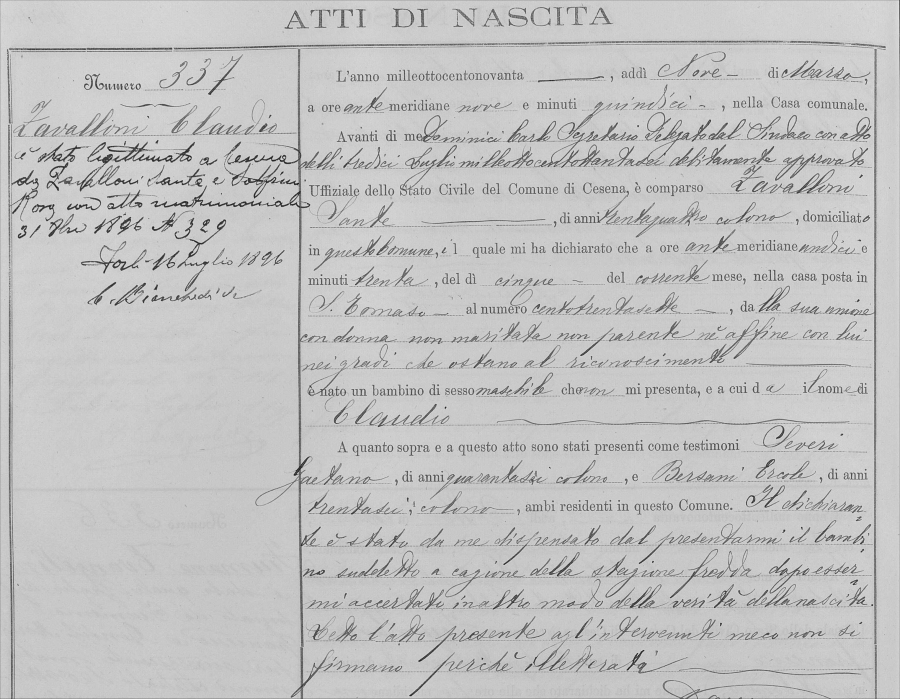 ATTI DI NASCITA
Numero 337
Zavalloni Claudio
è stato legittimato a
da Zavalloni Sante e
Rosa con atto matrimoniale
31 1896 N 329
Forlì 16 Luglio 1896
L'anno milleottocentonovanta, addì Nove di Marzo,
a ore ante meridiane nove e minuti quindici, nella Casa comunale.
Avanti di me Dominici Carlo Segretario Delegato dal Sindaco con atto
delli tredici Luglio milleottocentottantasei debitamente approvato
Uffiziale dello Stato Civile del Comune di Cesena, è comparso Zavalloni
Sante, di anni trentaquattro colono, domiciliato
in questo Comune, il quale mi ha dichiarato che a ore ante meridiane undici e
minuti trenta, del dì cinque del corrente mese, nella casa posta in
S. Tomaso al numero centotrentasette, dalla sua unione
con donna non maritata non parente nè affine con lui
nei gradi che ostano al riconoscimento
è nato un bambino di sesso maschile che non mi presenta, e a cui da il nome di
Claudio
A quanto sopra e a questo atto sono stati presenti come testimoni Severi
Gaetano, di anni quarantasei colono, e Bersani Ercole, di anni
trentasei, colono, ambi residenti in questo Comune. Il dichiaran-
te è stato da me dispensato dal presentarmi il bambi
no sudetto a cagione della stagione fredda dopo esser
mi accertato in altro modo della verità della nascita.
Letto l'atto presente agl'intervenuti meco non si
firmano perchè illetterati